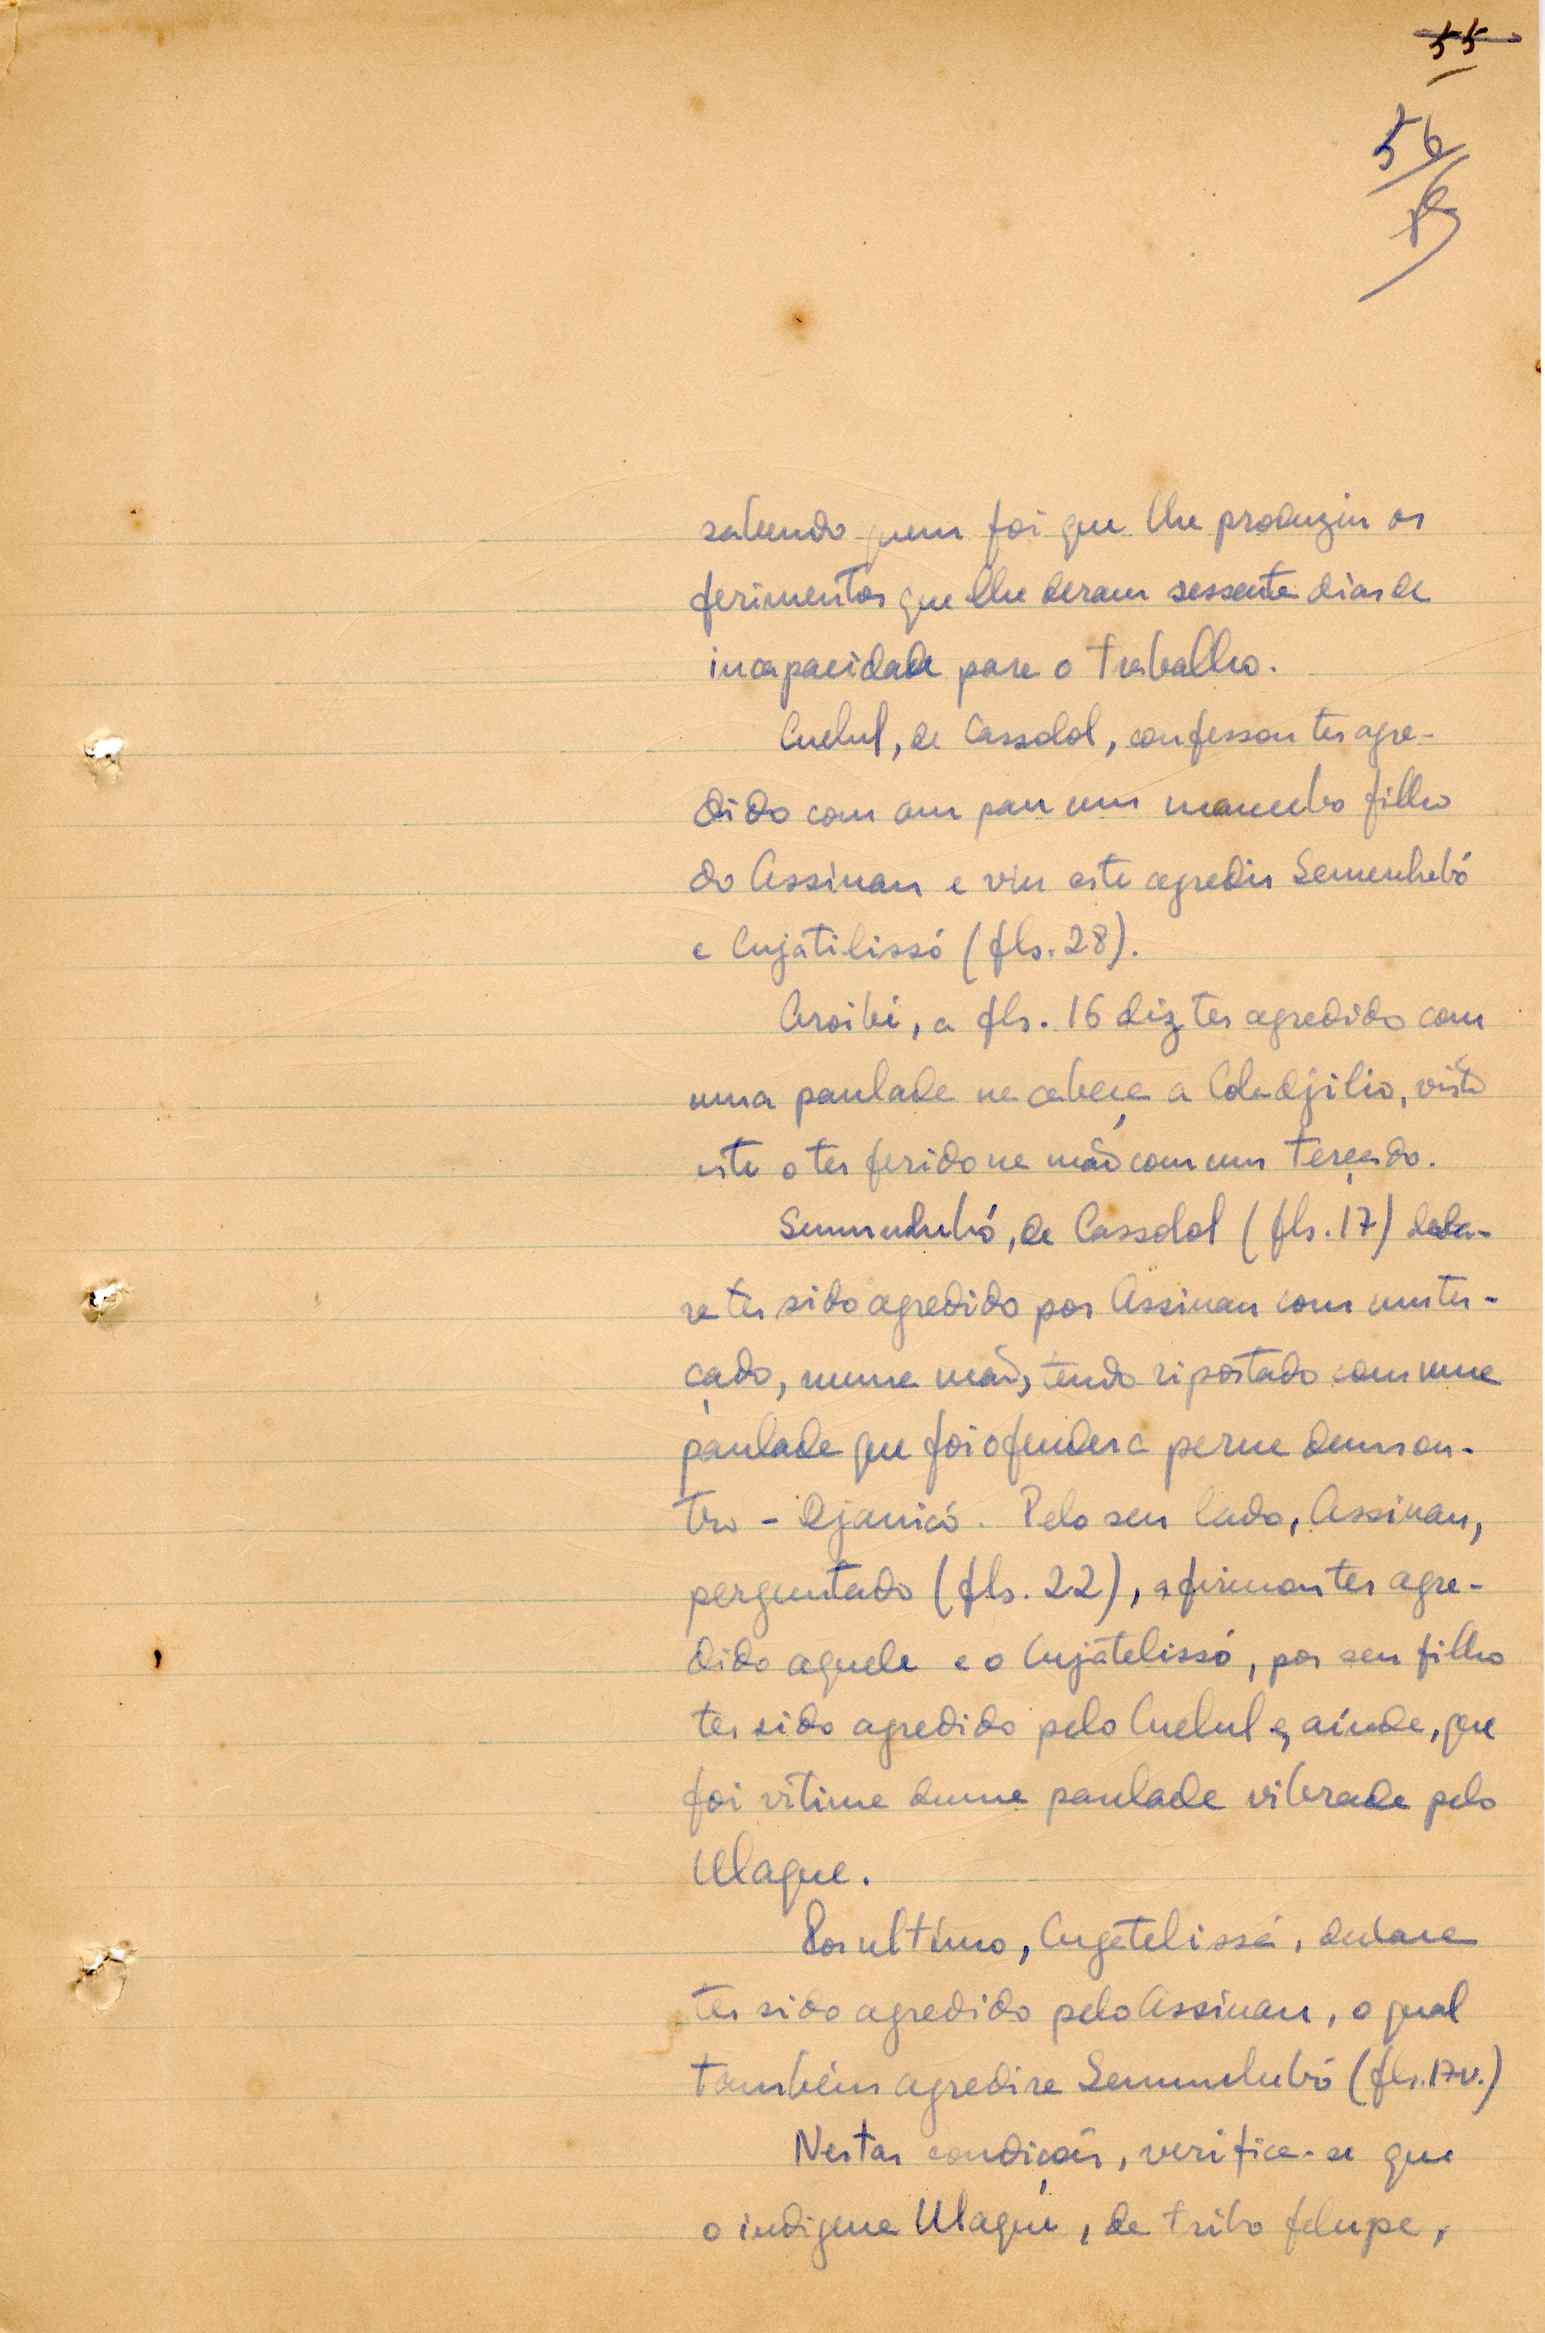 55
56
sabendo quem foi que lhe produziu os
ferimentos que lhe deram sessenta dias de
incapacidade para o trabalho.
Cuelul, de Cassolol, confessou ter agre-
dido com um pau um mancebo filho
do Assinau e viu este agredir Semenhebó
e Cujátilissó (fls. 28).
Aroibé, a fls. 16 diz ter agredido com
uma paulada na cabeça a Coladjilio, visto
este o ter ferido na mão com um terçado.
Semmulubó, de Cassolol (fls. 17) decla-
ra ter sido agredido por Assinau com um ter-
çado, numa mão, tendo ripostado com uma
paulada que foi ofender a perna dum ou-
tro - Djanicó. Pelo seu lado, Assinau,
perguntado (fls. 22), afirmou ter agre-
dido aquele e o Cujátelissó, por seu filho
ter sido agredido pelo Cuelul e, ainda, que
foi vítima duma paulada vibrada pelo
Ulaque.
Por ultimo, Cugatelissá, declara
ter sido agredido pelo Assinau, o qual
também agredira Semmulubó (fls. 17v.)
Nestas condições, verifica-se que
o indigena Ulaqué, da tribo felupe,